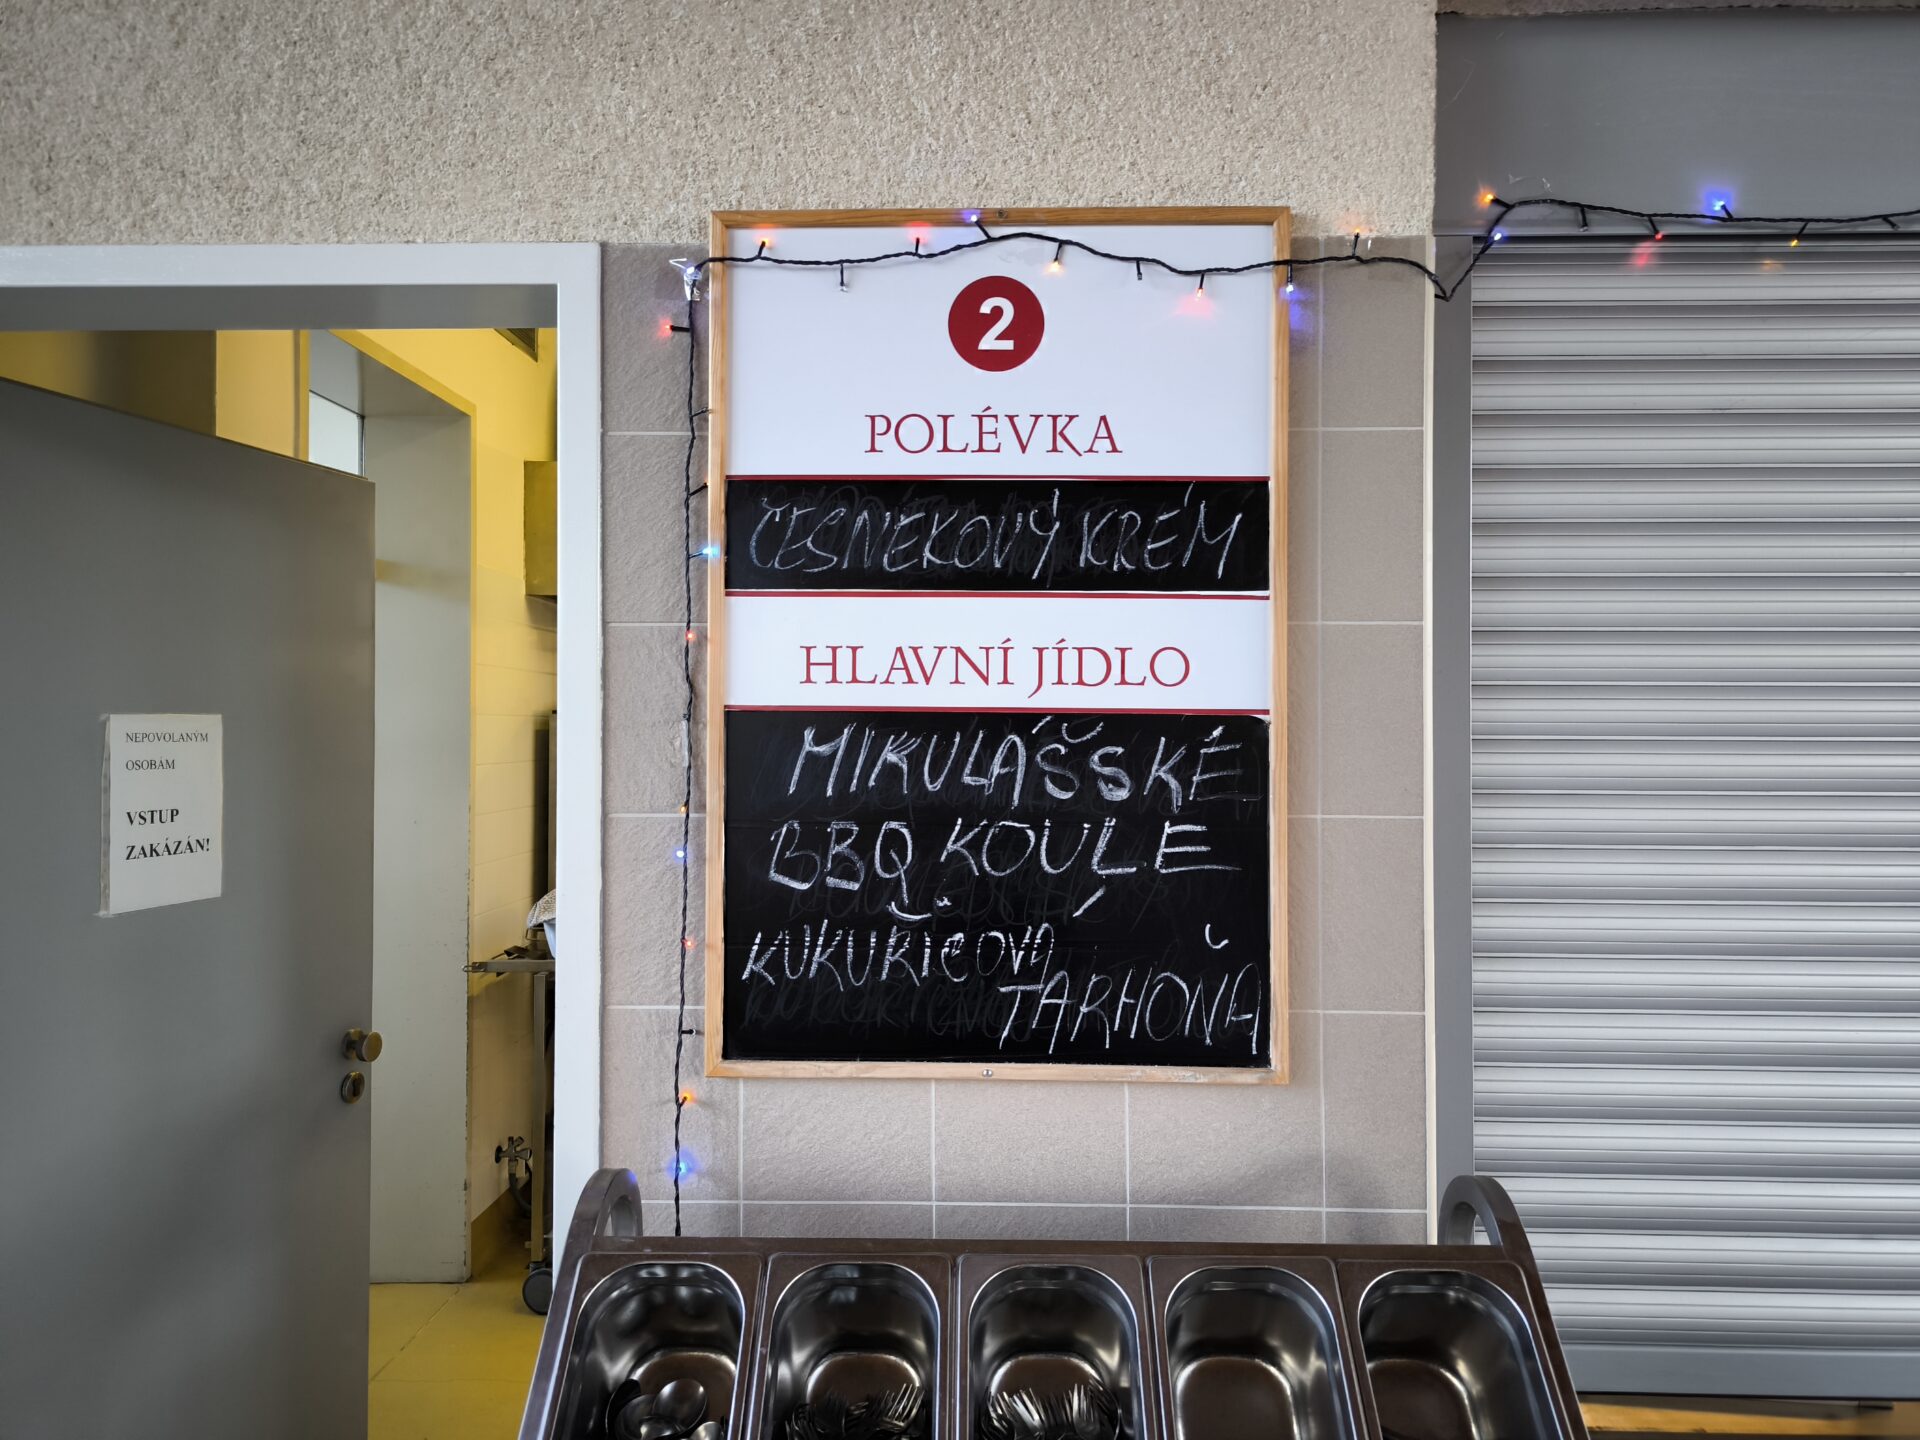 2
POLÉVKA
ČESNEKOVÝ KRÉM
HLAVNÍ JÍDLO
MIKULÁŠSKÉ
BBQ KOULE
KUKUŘICOVÁ
TARHOŇA
NEPOVOLANÝM
OSOBÁM
VSTUP
ZAKÁZÁN!